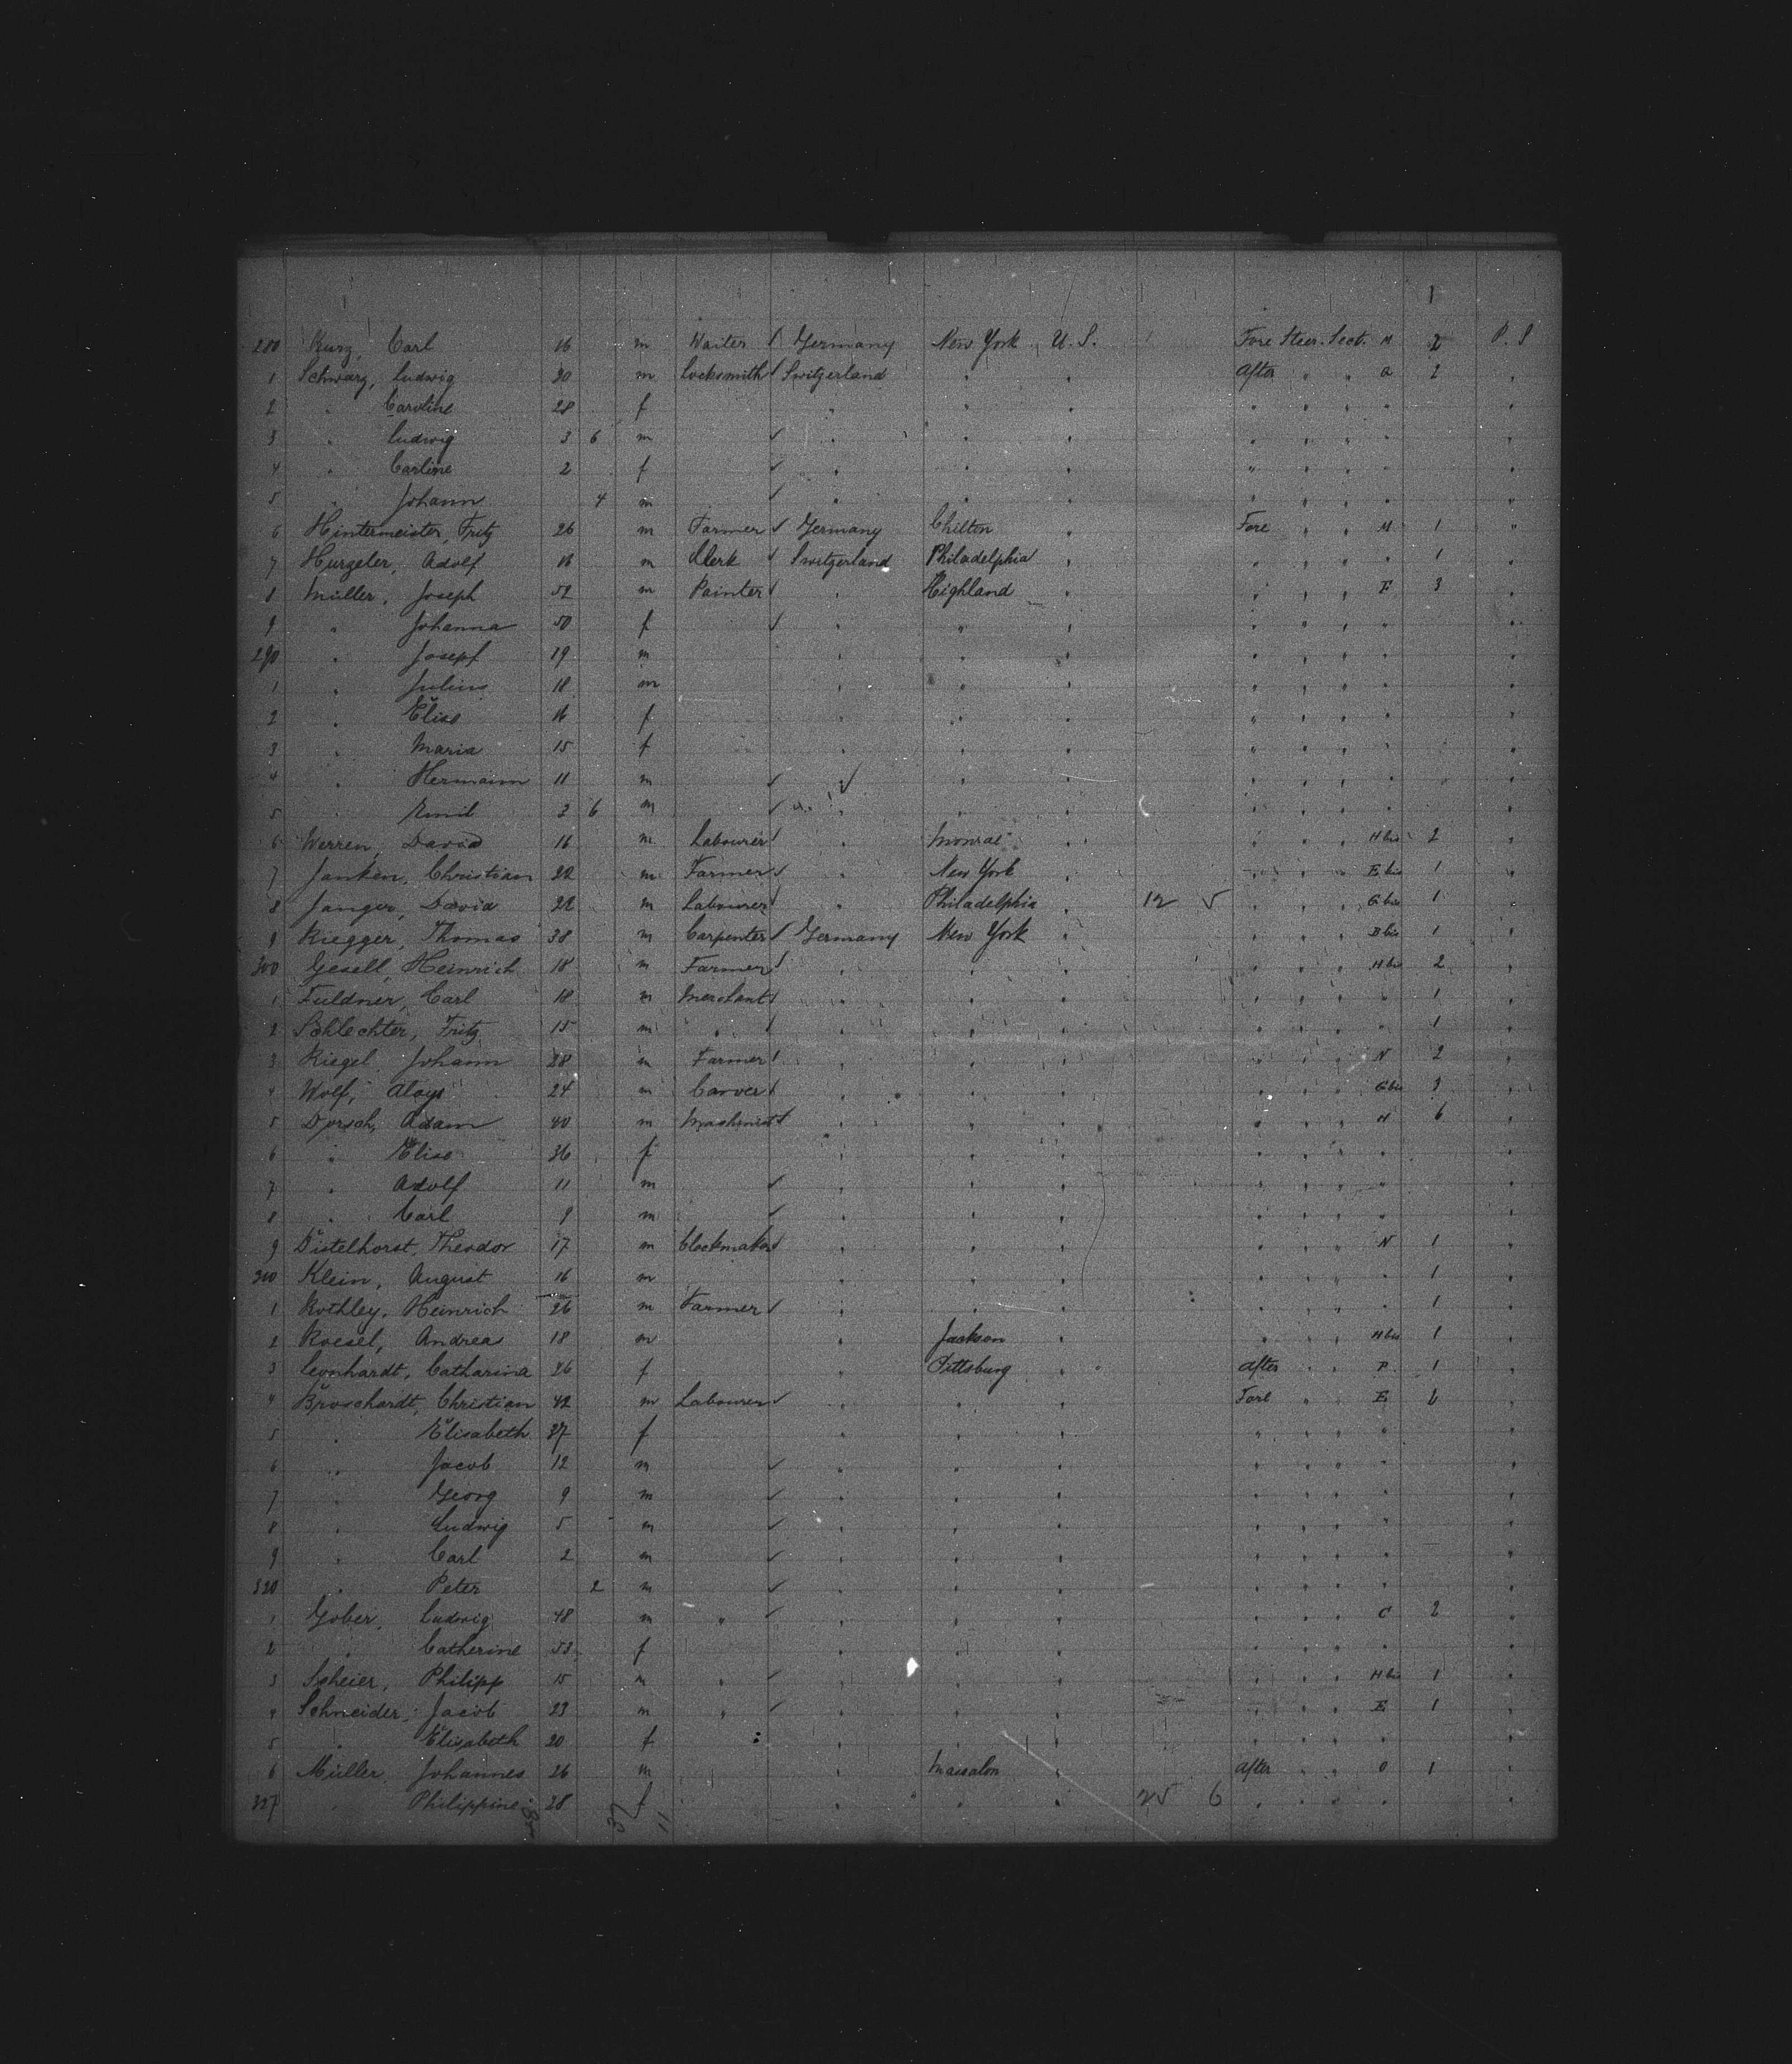 1
280 Kurz, Carl 16 m Waiter / Germany New York U. S. Fore Steer. Sect. H 2 P. S
1 Schwarz, Ludwig 30 m Locksmith / Switzerland " After " " a 2 "
2 " Caroline 28 f " " " " " " " "
3 " Ludwig 3 6 m ✓ " " " " " " " "
4 " Carline 2 f ✓ " " " " " " " "
5 " Johann 4 m ✓ " " " " " " "
6 Hintermeister, Fritz 26 m Farmer ✓ Germany Chilton " Fore " " M 1 "
7 Hurzeler, Adolf 16 m Clerk ✓ Switzerland Philadelphia " " " " " 1 "
8 Müller, Joseph 52 m Painter ✓ " Highland " " " " E 3 "
9 " Johanna 50 f ✓ " " " " " " " "
290 " Josepf 19 m " " " " " " " "
1 " Julius 18 m " " " " " " " "
2 " Elise 16 f " " " " " " " "
3 " Maria 15 f " " " " " " " "
4 " Hermann 11 m ✓ ✓ " " " " " " "
5 " Emil 3 6 m ✓ " " " " " " " "
6 Werren, David 16 m Labourer / " Monroe " " " " H bis 2 "
7 Janken, Christian 22 m Farmer ✓ " New York " " " " E bis 1 "
8 Janger, David 22 m Labourer / " Philadelphia " 12 5 " " " G bis 1 "
9 Riegger, Thomas 38 m Carpenter / Germany New York " " " " D bis 1 "
300 Gesell, Heinrich 18 m Farmer / " " " " " " H bis 2 "
1 Fuldner, Carl 18 m Merchant / " " " " " " " 1 "
2 Schlechter, Fritz 15 m " / " " " " " " " 1 "
3 Riegel Johann 28 m Farmer / " " " " " " N 2 "
4 Wolf, Aloys 24 m Carver / " " " " " " G bis 3 "
5 Dorsch, Adam 40 m Machinist / " " " " " " H 6 "
6 " Elise 36 f " " " " " " " "
7 " Adolf 11 m ✓ " " " " " " " "
8 " Carl 9 m ✓ " " " " " " " "
9 Distelhorst, Theodor 17 m Clockmaker / " " " " " " N 1 "
310 Klein, August 16 m " " " " " " " 1 "
1 Rothley, Heinrich 26 m Farmer ✓ " " " " " " " 1 "
2 Roesel, Andreas 18 m " Jackson " " " " H bis 1 "
3 Leonhardt, Catharina 26 f " Pittsburg " After " " P. 1 "
4 Broschardt, Christian 42 m Labourer ✓ " " " Fore " " E 6 "
5 " Elisabeth 37 f " " " " " " " "
6 " Jacob 12 m ✓ " " " " " " " "
7 " Georg 9 m ✓ " " " " " " " "
8 " Ludwig 5 m ✓ " " " " " " " "
9 " Carl 2 m ✓ " " " " " " " "
320 " Peter 2 m ✓ " " " " " " " "
1 Gober, Ludwig 48 m " ✓ " " " " " " C 2 "
2 " Catherine 53 f " " " " " " " "
3 Scheier, Philipp 15 m " ✓ " " " " " " H bis 1 "
4 Schneider, Jacob 23 m " ✓ " " " " " " E 1 "
5 " Elisabeth 20 f " " " " " " " "
6 Müller Johannes 26 m " " After " " O 1 "
327 " Philippine 28 f " " " 25 6 " " " " "
37 11